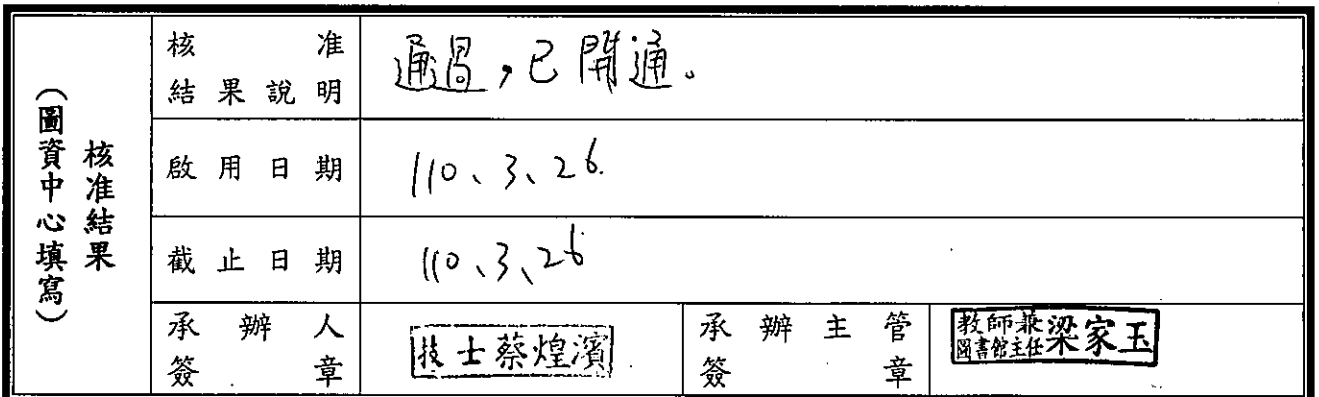 核准結果
(圖資中心填寫)
核准
結果說明
通過,已開通。
啟用日期
110、3、26.
截止日期
110、3、26
承辦人
簽章
技士蔡煌濱
承辦主管
簽章
教師兼
圖書館主任
梁家玉